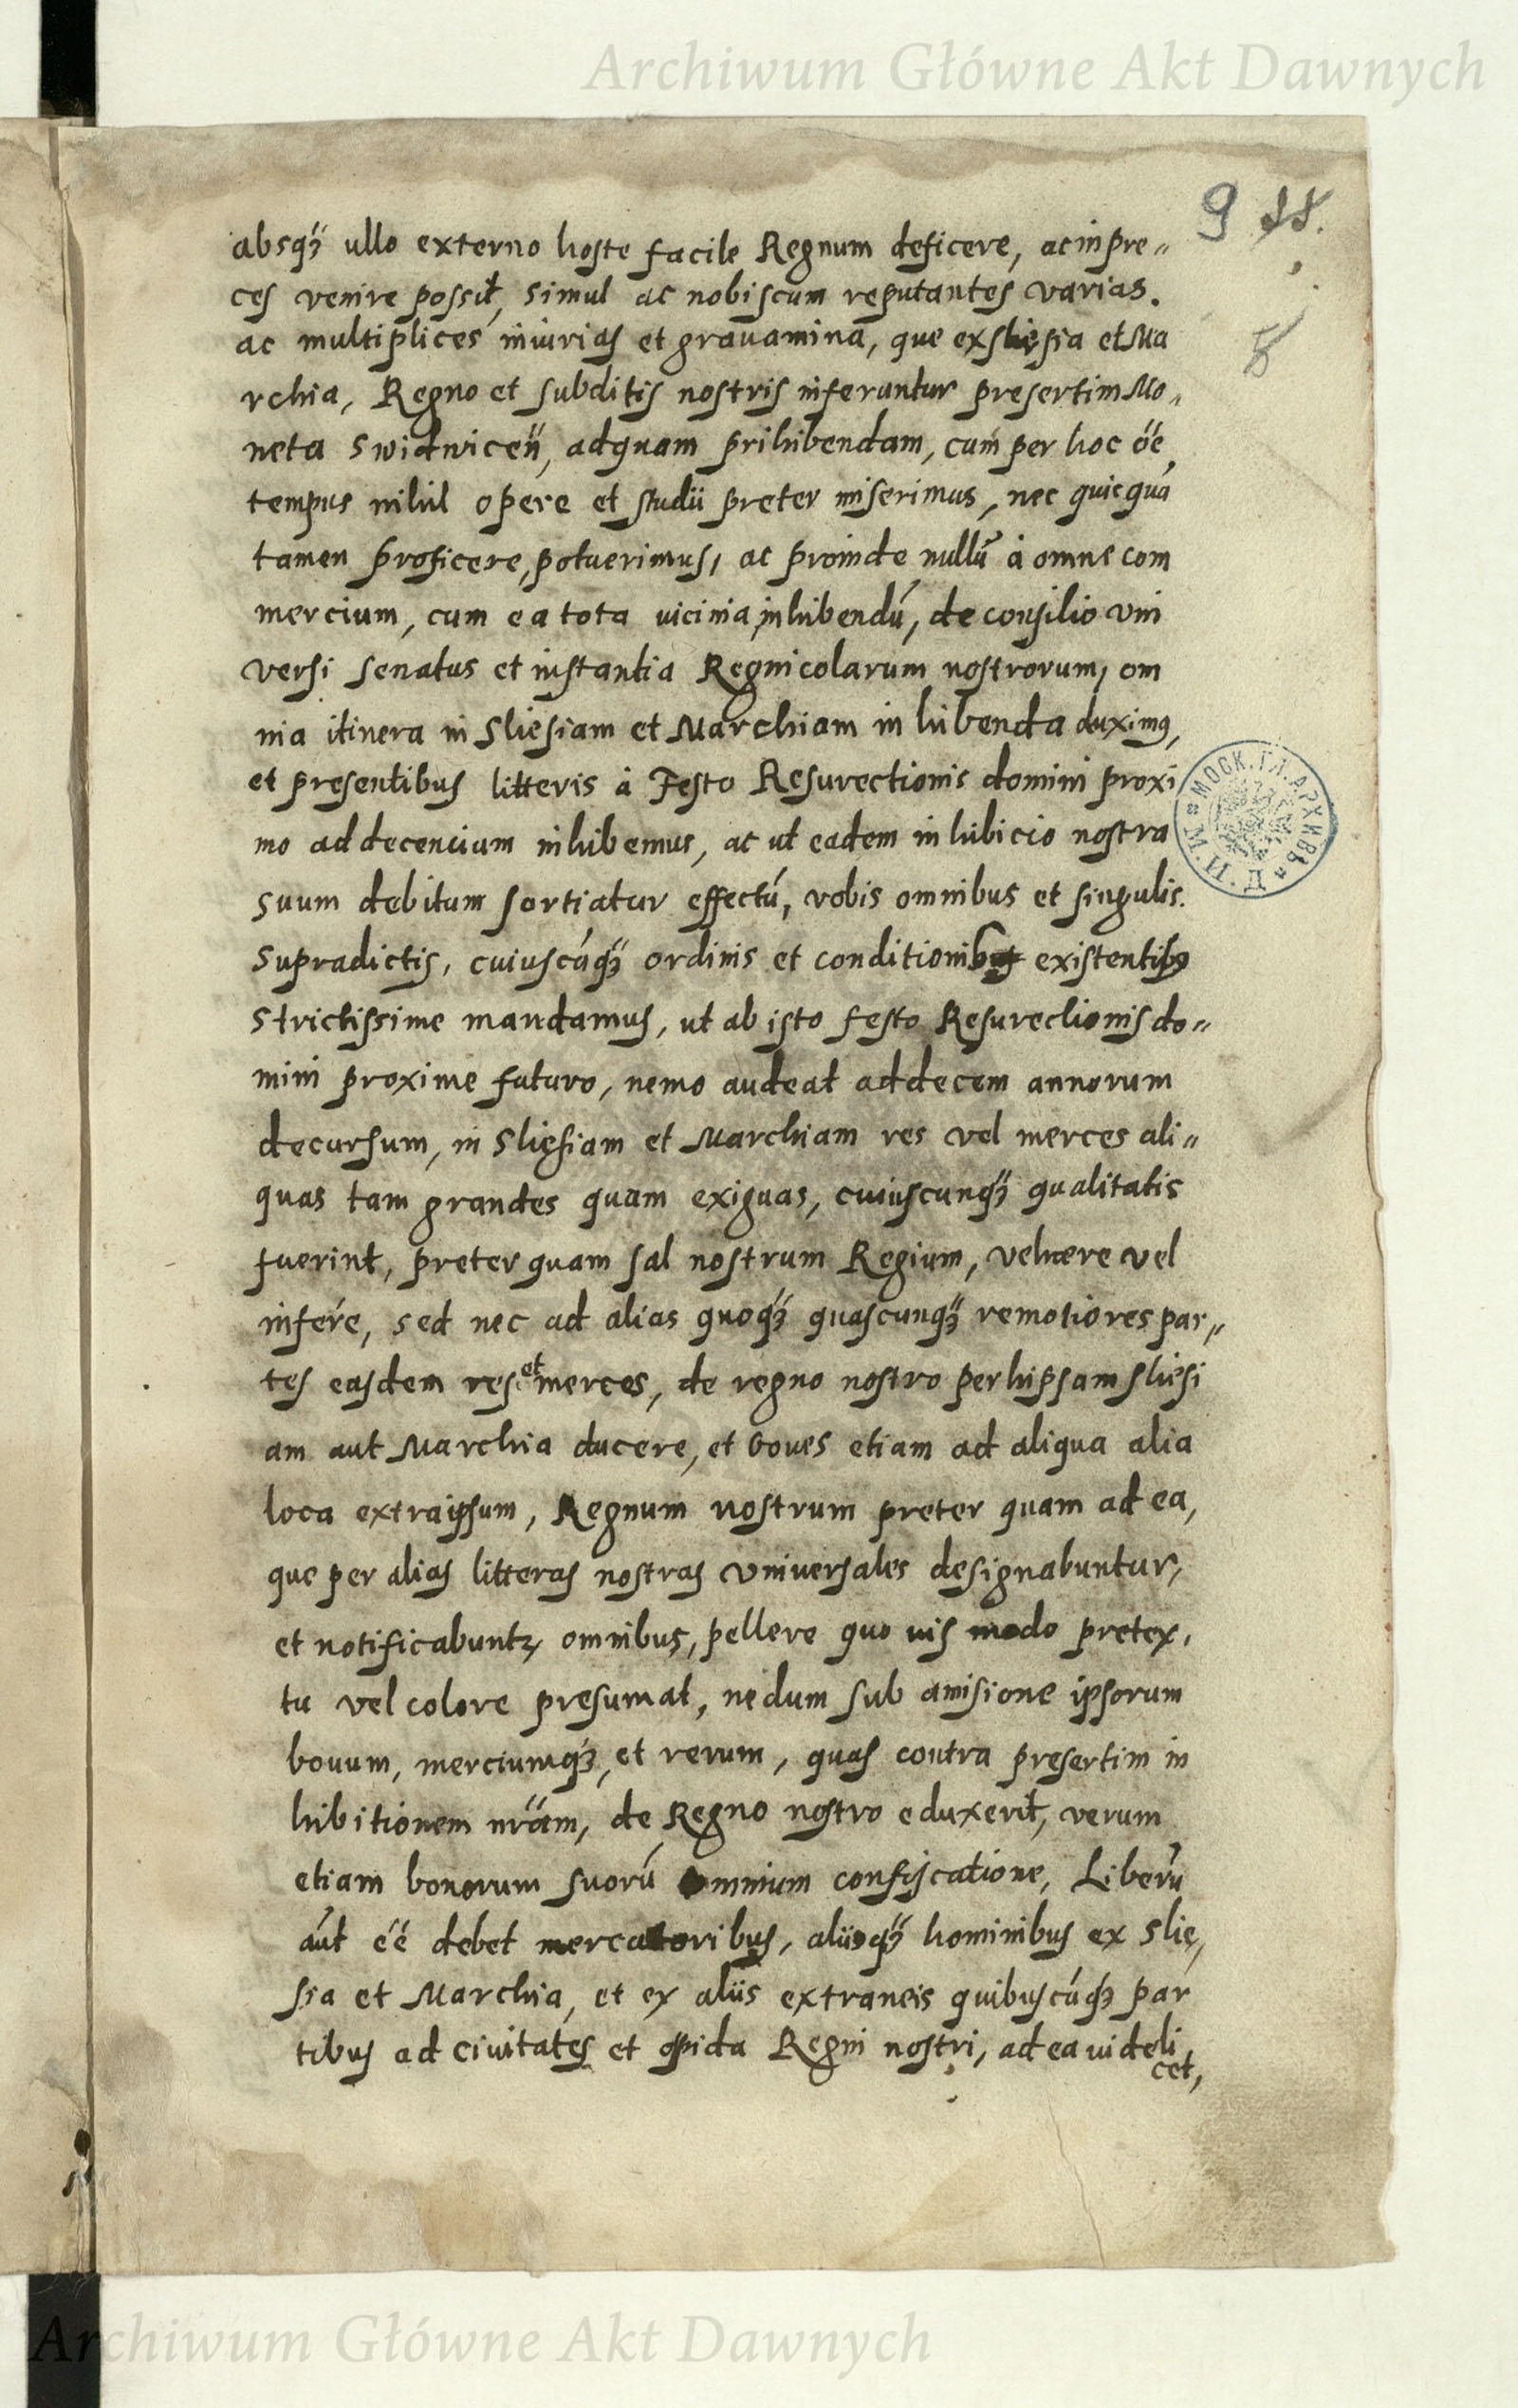 Archiwum Główne Akt Dawnych
9
8
absqꝫ ullo externo hoste facile Regnum deficere, ac in pre„
ces venire possit, simul ac nobiscum reputantes varias.
ac multiplices iniurias et grauamina, que ex Sliesia et Ma
rchia, Regno et subditis nostris inferuntur presertim Mo„
neta Swidnicen̄, ad quam prihibendam, cum per hoc o̅e
tempus nihil opere et studii preter miserimus, nec quicquā
tamen proficere, potuerimus, ac proinde nullū á omne com
mercium, cum ea tota vicinia, inhibendū, de consilio vni
versi Senatus et instantia Regnicolarum nostrorum, om
nia itinera in Sliesiam et Marchiam in hibenda duximꝰ,
et presentibus litteris á Festo Resurectionis domini proxi
mo ad decencium inhibemus, ac ut eadem in hibicio nostra
suum debitum sortiatur effectū, vobis omnibus et singulis.
supradictis, cuiuscūqꝫ ordinis et conditionibus existentibꝰ
strictissime mandamus, ut ab isto festo Resurectionis do„
mini proxime futuro, nemo audeat ad decem annorum
decursum, in Sliesiam et Marchiam res vel merces ali„
quas tam grandes quam exiguas, cuiuscunqꝫ qualitatis
fuerint, preter quam sal nostrum Regium, vehere vel
inferre, sed nec ad alias quoqꝫ quascunqꝫ remotiores par„
tes easdem res et merces, de regno nostro per hipsam Sliesi
am aut Marchia ducere, et boues etiam ad aliqua alia
loca extra ipsum, Regnum nostrum preter quam ad ea,
que per alias litteras nostras vniversales designabuntur,
et notificabuntꝫ omnibus, pellere quo uis modo pretex,
tu vel colore presumat, nedum sub amisione ipsorum
bouum, merciumqꝫ, et rerum, quas contra presertim in
hibitionem nr̄am, de Regno nostro eduxerit, verum
etiam bonorum suorū omnium confiscatione, Liberū
aūt e̅e̅ debet mercatoribus, aliisqꝫ hominibus ex Slie,
sia et Marchia, et ex aliis extraneis quibuscūqꝫ par
tibus ad ciuitates et opida Regni nostri, ad ea uideli
cet,
МОСК. ГЛ. АРХИВЪ
Д. И. М.
Archiwum Główne Akt Dawnych